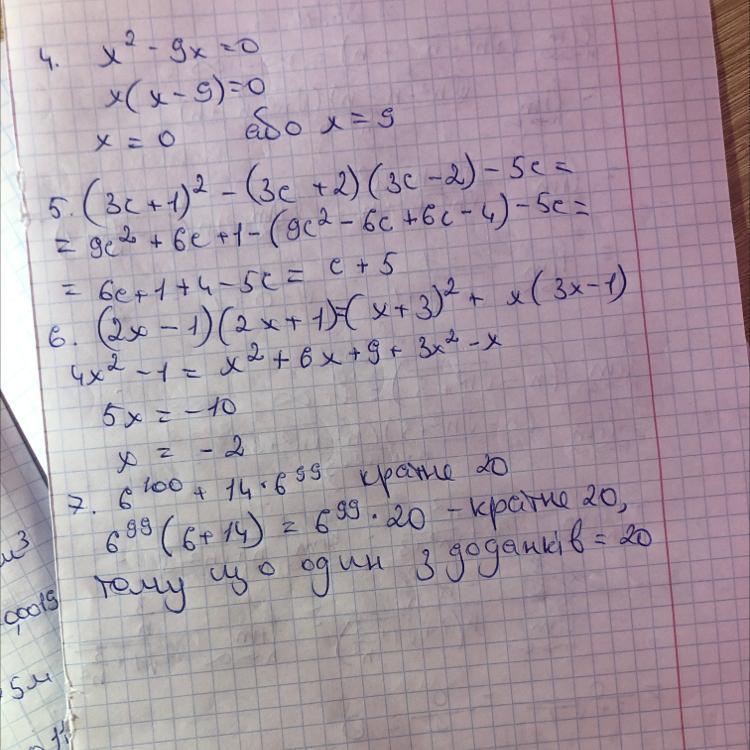 4. x² - 9x = 0
x(x - 9) = 0
x = 0 або x = 9
5. (3c + 1)² - (3c + 2)(3c - 2) - 5c =
= 9c² + 6c + 1 - (9c² - 6c + 6c - 4) - 5c =
= 6c + 1 + 4 - 5c = c + 5
6. (2x - 1)(2x + 1) = (x + 3)² + x(3x - 1)
4x² - 1 = x² + 6x + 9 + 3x² - x
5x = -10
x = -2
7. 6¹⁰⁰ + 14 · 6⁹⁹ кратне 20
6⁹⁹(6 + 14) = 6⁹⁹ · 20 - кратне 20,
тому що один з доданків = 20
м³
0,0019
5м